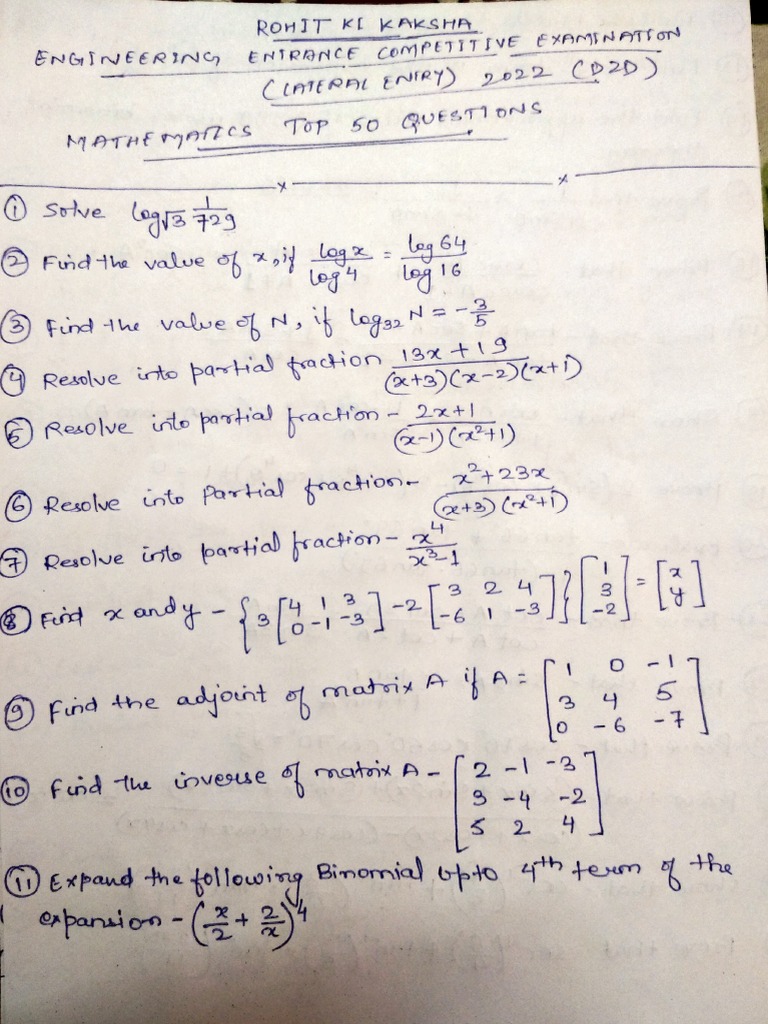 ROHIT KI KAKSHA
ENGINEERING ENTRANCE COMPETITIVE EXAMINATION
(LATERAL ENTRY) 2022 (D2D)
MATHEMATICS TOP 50 QUESTIONS
① Solve log√3 1/729
② Find the value of x, if log x/log 4 = log 64/log 16
③ Find the value of N, if log₃₂ N = -3/5
④ Resolve into partial fraction (13x+19)/((x+3)(x-2)(x+1))
⑤ Resolve into partial fraction - (2x+1)/((x-1)(x²+1))
⑥ Resolve into Partial fraction - (x²+23x)/((x+3)(x²+1))
⑦ Resolve into partial fraction - x⁴/(x³-1)
⑧ Find x and y - {3[4 1 3; 0 -1 -3] -2[3 2 4; -6 1 -3]}[1; 3; -2] = [x; y]
⑨ Find the adjoint of matrix A if A = [1 0 -1; 3 4 5; 0 -6 -7]
⑩ Find the inverse of matrix A - [2 -1 -3; 3 -4 -2; 5 2 4]
⑪ Expand the following Binomial upto 4th term of the
expansion - (x/2 + 2/x)⁴